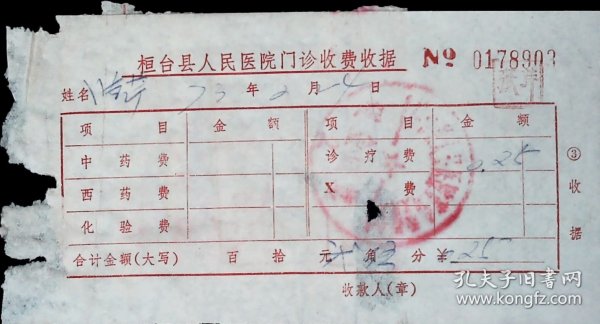 桓台县人民医院门诊收费收据 № 0178903
姓名 年 月 日
项 目 金 额 项 目 金 额
中 药 费 诊 疗 费 0.25
西 药 费 X 费
化 验 费
合计金额(大写) 百 拾 元 角 分 0.25
收款人(章)
③收据
孔夫子旧书网
www.kongfz.com